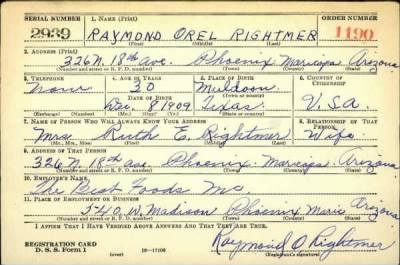 SERIAL NUMBER 1. NAME (Print) ORDER NUMBER
2939 RAYMOND OREL RIGHTMER 1190
(First) (Middle) (Last)
2. ADDRESS (Print)
326 N. 18th ave. Phoenix Maricopa Arizona
(Number and street or R. F. D. number) (Town) (County) (State)
3. TELEPHONE 4. AGE IN YEARS 5. PLACE OF BIRTH 6. COUNTRY OF CITIZENSHIP
None 30 Muldoon
DATE OF BIRTH (Town or county)
Dec. 8 1909 Texas U.S.A.
(Exchange) (Number) (Mo.) (Day) (Yr.) (State or country)
7. NAME OF PERSON WHO WILL ALWAYS KNOW YOUR ADDRESS 8. RELATIONSHIP OF THAT PERSON
Mrs Ruth E. Rightmer Wife
(Mr., Mrs., Miss) (First) (Middle) (Last)
9. ADDRESS OF THAT PERSON
326 N. 18th ave. Phoenix Maricopa Arizona
(Number and street or R. F. D. number) (Town) (County) (State)
10. EMPLOYER'S NAME
The Best Foods Inc
11. PLACE OF EMPLOYMENT OR BUSINESS
540 W. Madison Phoenix Maric Arizona
(Number and street or R. F. D. number) (Town) (County) (State)
I AFFIRM THAT I HAVE VERIFIED ABOVE ANSWERS AND THAT THEY ARE TRUE.
REGISTRATION CARD
D. S. S. Form 1
Raymond O Rightmer
(Registrant's signature)